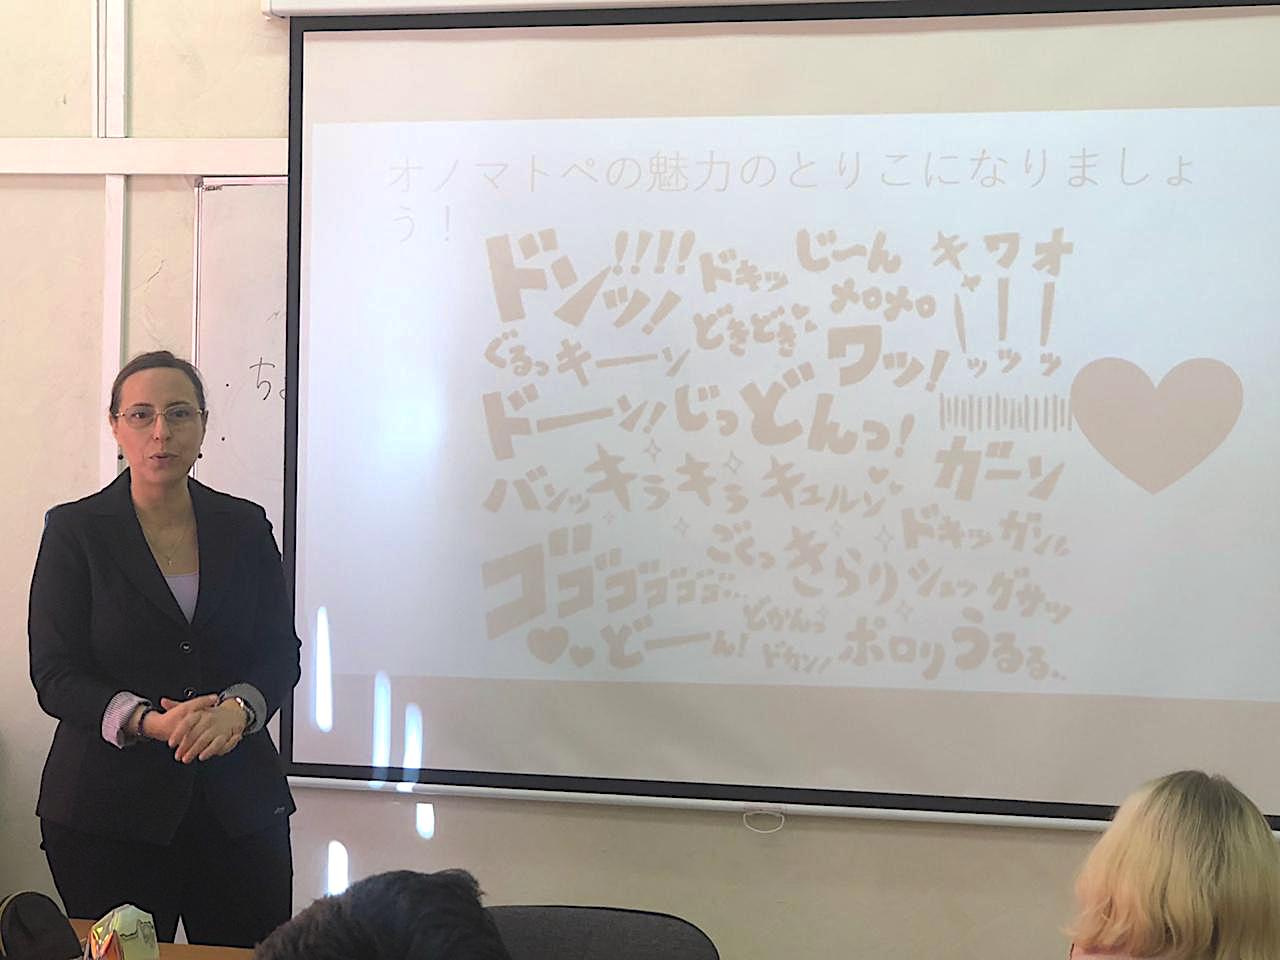 オノマトペの魅力のとりこになりましょ
う！
ドンッ!!!!!
ドキッ
じーん
キャーッ
ワーッ
オーッ
メロメロ
どきどき
ぐるっ
キーーン
ワッ!
ドーーン!
じっ
どんっ!
ガーン
バンッ
キラキラ
キュルン
ドキッ
ガン!
ゴゴゴゴゴゴゴ...
ごくっ
きらり
ショッ
グサッ
どーーん!
どかんっ
ドカン!
ポロリ
うるる..
ち